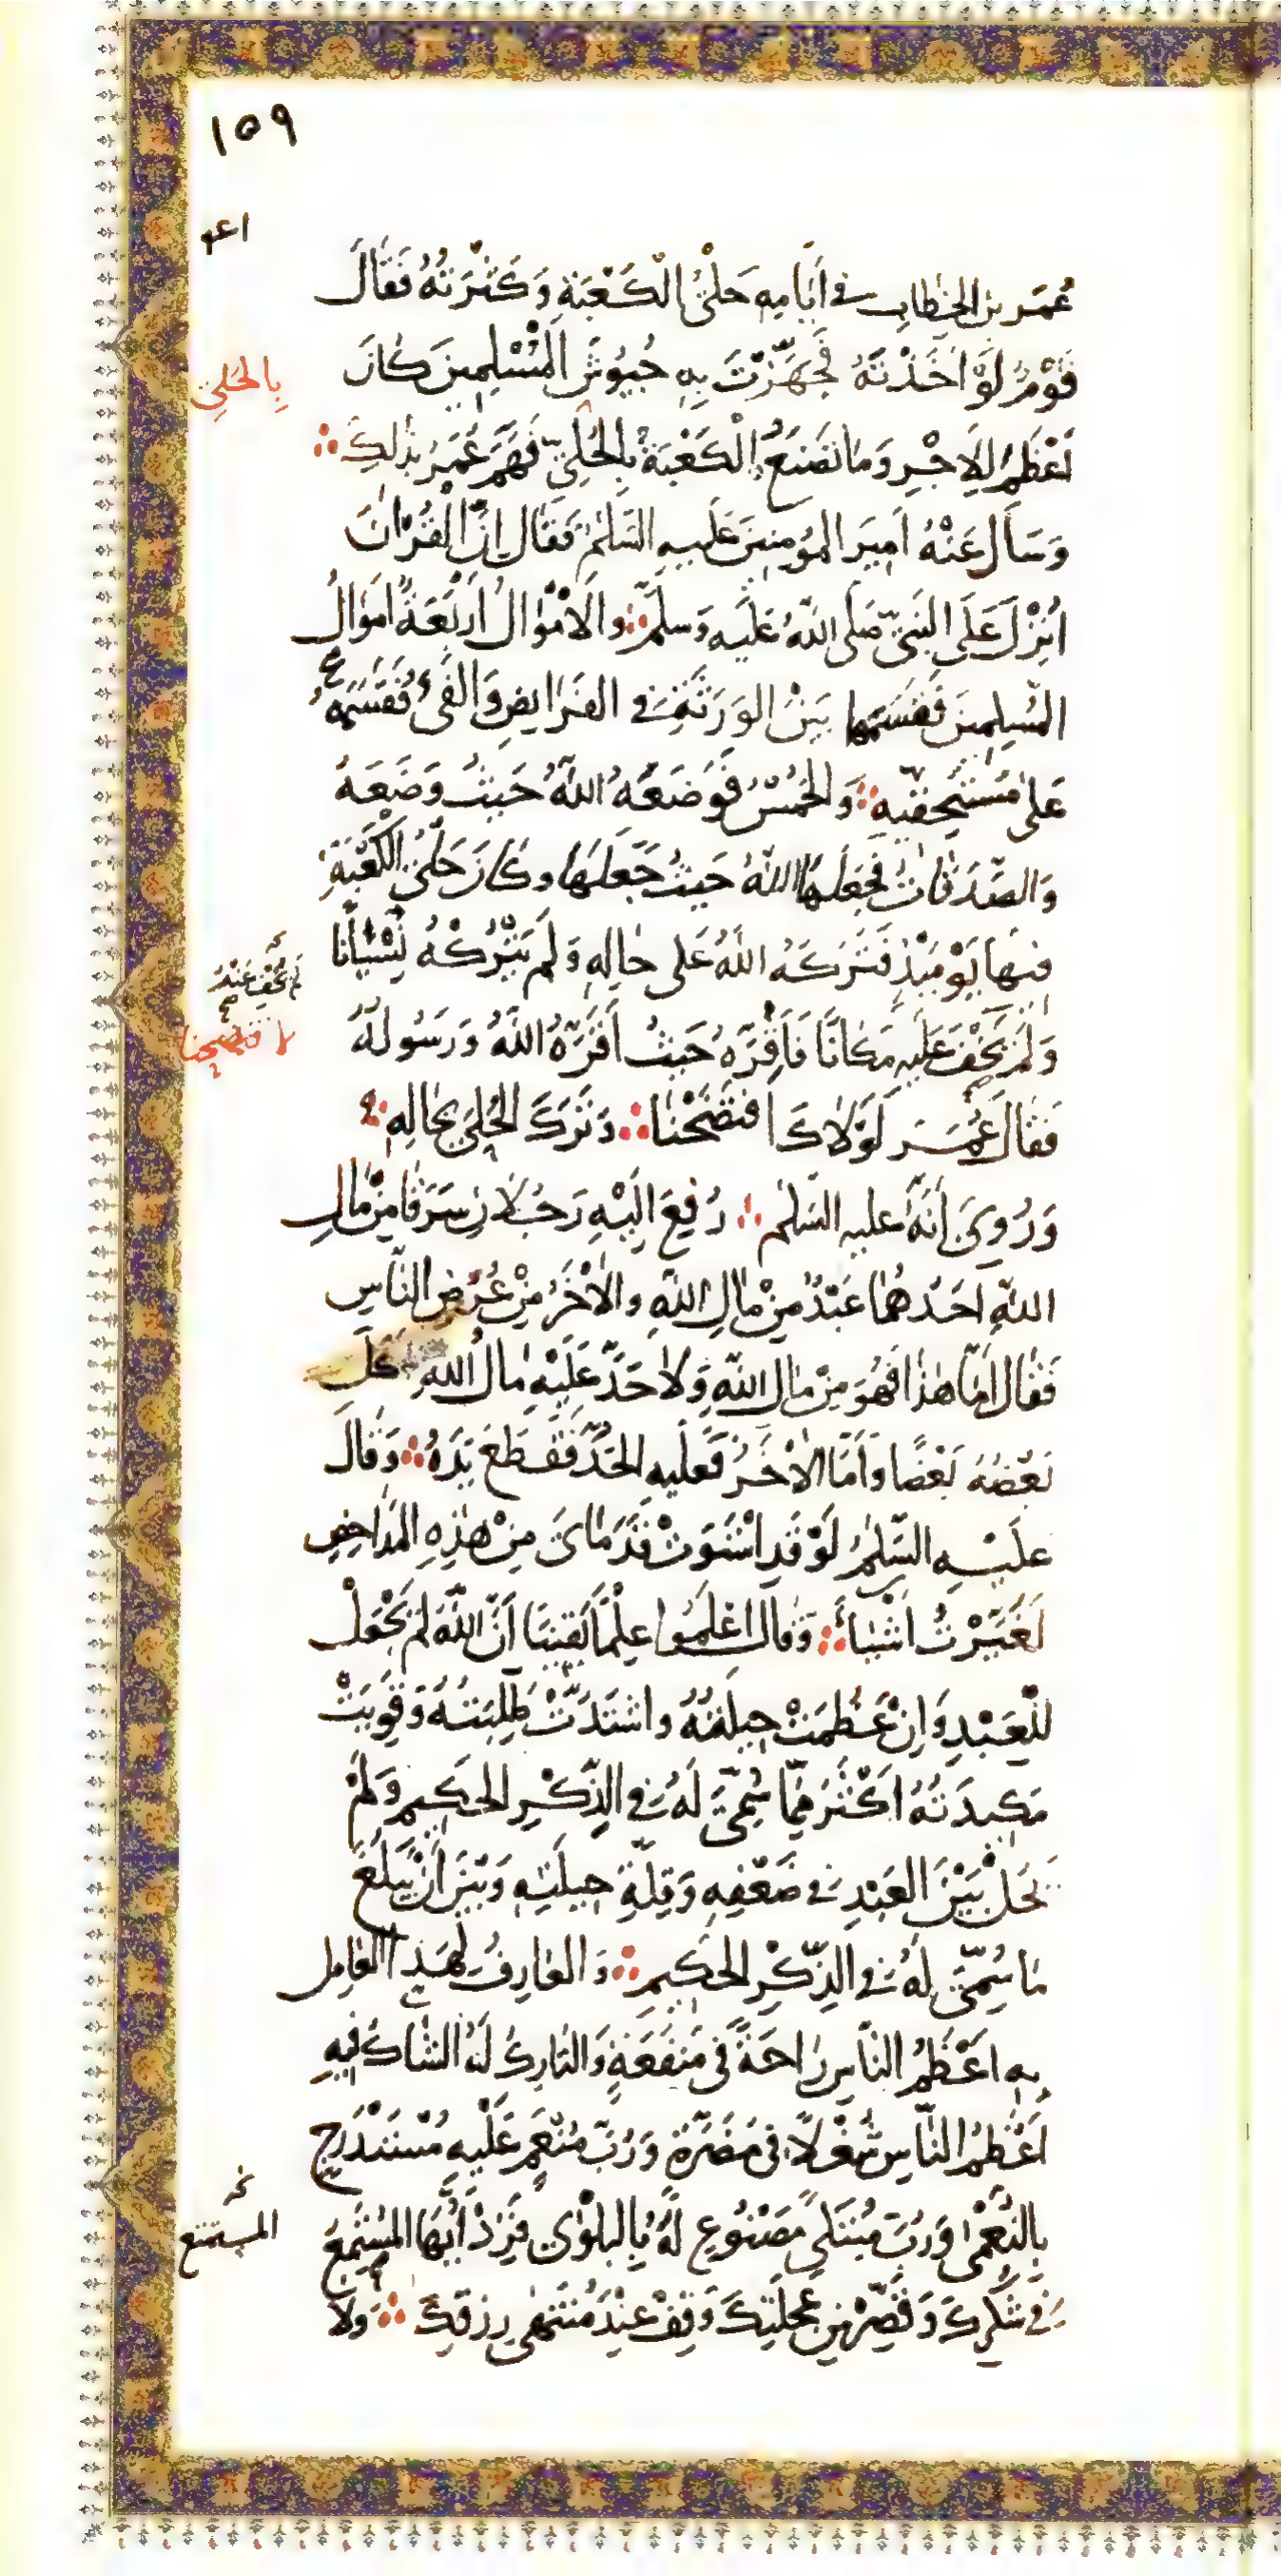 ١٥٩
عُمَر بن الخطاب في أَيَّامِهِ حَلْيُ الْكَعْبَةِ وَكَثْرَتُهُ فَقَالَ
قَوْمٌ لَوْ أَخَذْتَهُ فَجَهَّزْتَ بِهِ جُيُوشَ الْمُسْلِمِينَ كَانَ
بِالحَلْيِ
أَعْظَمَ لِلْأَجْرِ وَمَا تَصْنَعُ الْكَعْبَةُ بِالْحَلْيِ فَهَمَّ عُمَرُ بِذَلِكَ
وَسَأَلَ عَنْهُ أَمِيرَ المؤمنينَ عَلَيهِ السَّلمُ فَقَالَ إِنَّ الْقُرْآنَ
أُنْزِلَ عَلَى النَّبِيِّ صَلَّى اللهُ عَلَيهِ وَسلَّمَ والأَمْوَالُ أَرْبَعَةٌ أَمْوَالُ
المُسْلِمِينَ فَقَسَمَهَا بَيْنَ الوَرَثَةِ في الفَرَايضِ وَالْفَيْءُ فَقَسَمَهُ
عَلَى مُسْتَحِقِّيهِ وَالْخُمْسُ فَوَضَعَهُ اللهُ حَيْثُ وَضَعَهُ
وَالصَّدَقَاتُ فَجَعَلَهَا اللهُ حَيثُ جَعَلَهَا وَكَانَ حَلْيُ الْكَعْبَةِ
فِيهَا يَوْمَئِذٍ فَتَرَكَهُ اللهُ عَلَى حَالِهِ وَلَمْ يَتْرُكْهُ نِسْيَانًا
لم يَخْفَ عَنْهُ
وَلَمْ يَخْفَ عَلَيهِ مَكَانًا فَأَقِرَّهُ حَيْثُ أَقَرَّهُ اللهُ وَرَسُولُهُ
لافتضحنا
فَقَالَ عُمَر لَوْلَاكَ افتَضَحْنَا وَتَرَكَ الْحَلْيَ بِحَالِهِ
وَرُوِيَ أَنَّهُ عليه السّلم رُفِعَ إِلَيْهِ رَجُلَانِ سَرَقَا مِنْ مَالِ
اللهِ أَحَدُهُمَا عَبْدٌ مِنْ مَالِ اللهِ والْآخَرُ مِنْ عُرْضِ النَّاسِ
فَقَالَ أَمَّا هَذَا فَهُوَ مِنْ مَالِ اللهِ وَلَا حَدَّ عَلَيْهِ مَالُ اللهِ أَكَلَ
بَعْضُهُ بَعْضًا وَأَمَّا الْآخَرُ فَعَلَيهِ الحَدُّ فَقَطَعَ يَدَهُ وَقَالَ
عَلَيْهِ السَّلمُ لَوْ قَدِ اسْتَوَتْ قَدَمَايَ مِنْ هَذِهِ المَدَاحِضِ
لَغَيَّرْتُ أَشْيَاءَ وَقَالَ اعْلَمُوا عِلْمًا يَقِينًا أَنَّ اللهَ لَمْ يَجْعَلْ
لِلْعَبْدِ وَإِنْ عَظُمَتْ حِيلَتُهُ واشْتَدَّتْ طَلِبَتُهُ وَقَوِيَتْ
مَكِيدَتُهُ أَكْثَرَ مِمَّا سُمِّيَ لَهُ في الذِّكْرِ الحَكِيمِ وَلَمْ
يَحُلْ بَيْنَ العَبْدِ في ضَعْفِهِ وَقِلَّةِ حِيلَتِهِ وَبَيْنَ أَنْ يَبْلُغَ
مَا سُمِّيَ لَهُ في الذِّكْرِ الحَكِيمِ وَالعَارِفُ لِهَذَا الْعَامِلُ
بِهِ أَعْظَمُ النَّاسِ رَاحَةً في مَنْفَعَةٍ وَالتَّارِكُ لَهُ الشَّاكُّ فِيهِ
أَعْظَمُ النَّاسِ شُغْلًا في مَضَرَّةٍ وَرُبَّ مُنْعَمٍ عَلَيْهِ مُسْتَدْرَجٌ
بِالنُّعْمَى وَرُبَّ مُبْتَلًى مَصْنُوعٍ لَهُ بِالبَلْوَى فَزِدْ أَيُّهَا المُسْتَمِعُ
المستمتع
في شُكْرِكَ وَقَصِّرْ مِن عَجَلَتِكَ وَقِفْ عِنْدَ مُنْتَهَى رِزْقِكَ وَلَا